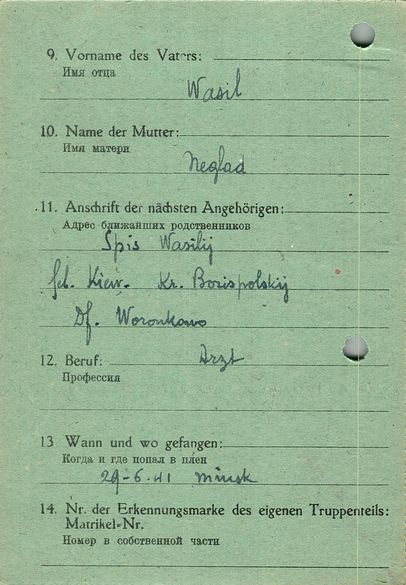 9. Vorname des Vaters:
Имя отца
Wasil
10. Name der Mutter:
Имя матери
Neglad
11. Anschrift der nächsten Angehörigen:
Адрес ближайших родственников
Spis Wasilij
Geb. Kiew. Kr. Borispolskij
Df. Woronkowo
12. Beruf: Arzt
Профессия
13 Wann und wo gefangen:
Когда и где попал в плен
29-6.41 Minsk
14. Nr. der Erkennungsmarke des eigenen Truppenteils:
Matrikel-Nr.
Номер в собственной части